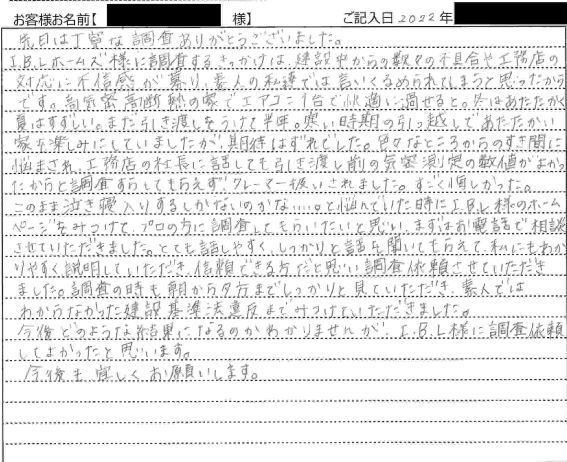 お客様お名前【 様】 ご記入日 2022年
先日は丁寧な調査ありがとうございました。
I.B.Lホームズ様に調査するきっかけは、建設中からの数々の不具合や工務店の
対応に不信感が募り、素人の私達では言いくるめられてしまうと思ったから
です。高気密高断熱の家でエアコン1台で快適に過せると。冬はあたたかく
夏はすずしい。また引き渡しをうけて半年。寒い時期の引っ越しであたたかい
家を楽しみにしていましたが、期待はずれでした。色々なところからのすき間に
悩まされ、工務店の社長に話しても引き渡し前の気密測定の数値がよかっ
たからと調査すらしてもらえずクレーマー扱いされました。すごく悔しかった。
このまま泣き寝入りするしかないのかな…。と悩んでいた時にI.B.L様のホーム
ページをみつけて、プロの方に調査してもらいたいと思い、まずはお電話で相談
させていただきました。とても話しやすく、しっかりと話を聞いてもらえて、私にもわか
りやすく説明していただき、信頼できる方だと思い調査依頼させていただき
ました。調査の時も朝から夕方までしっかりと見ていただき、素人では
わからなかった建設基準法違反までみつけていただきました。
今後どのような結果になるのかわかりませんが、I.B.L様に調査依頼
してよかったと思います。
今後も宜しくお願いします。